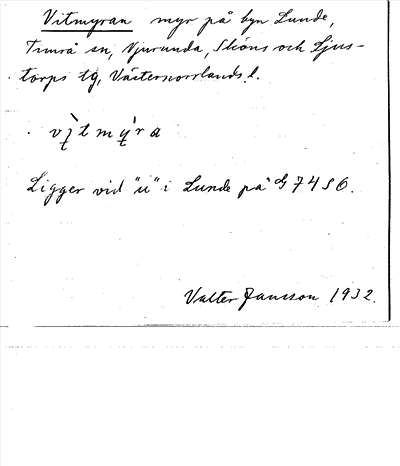 Vitmyran myr på byn Lunde,
Timrå sn, Njurunda, Sköns och Ljus-
torps tg, Västernorrlands l.
Ligger vid "u" i Lunde på G 7456.
Valter Jansson 1932.